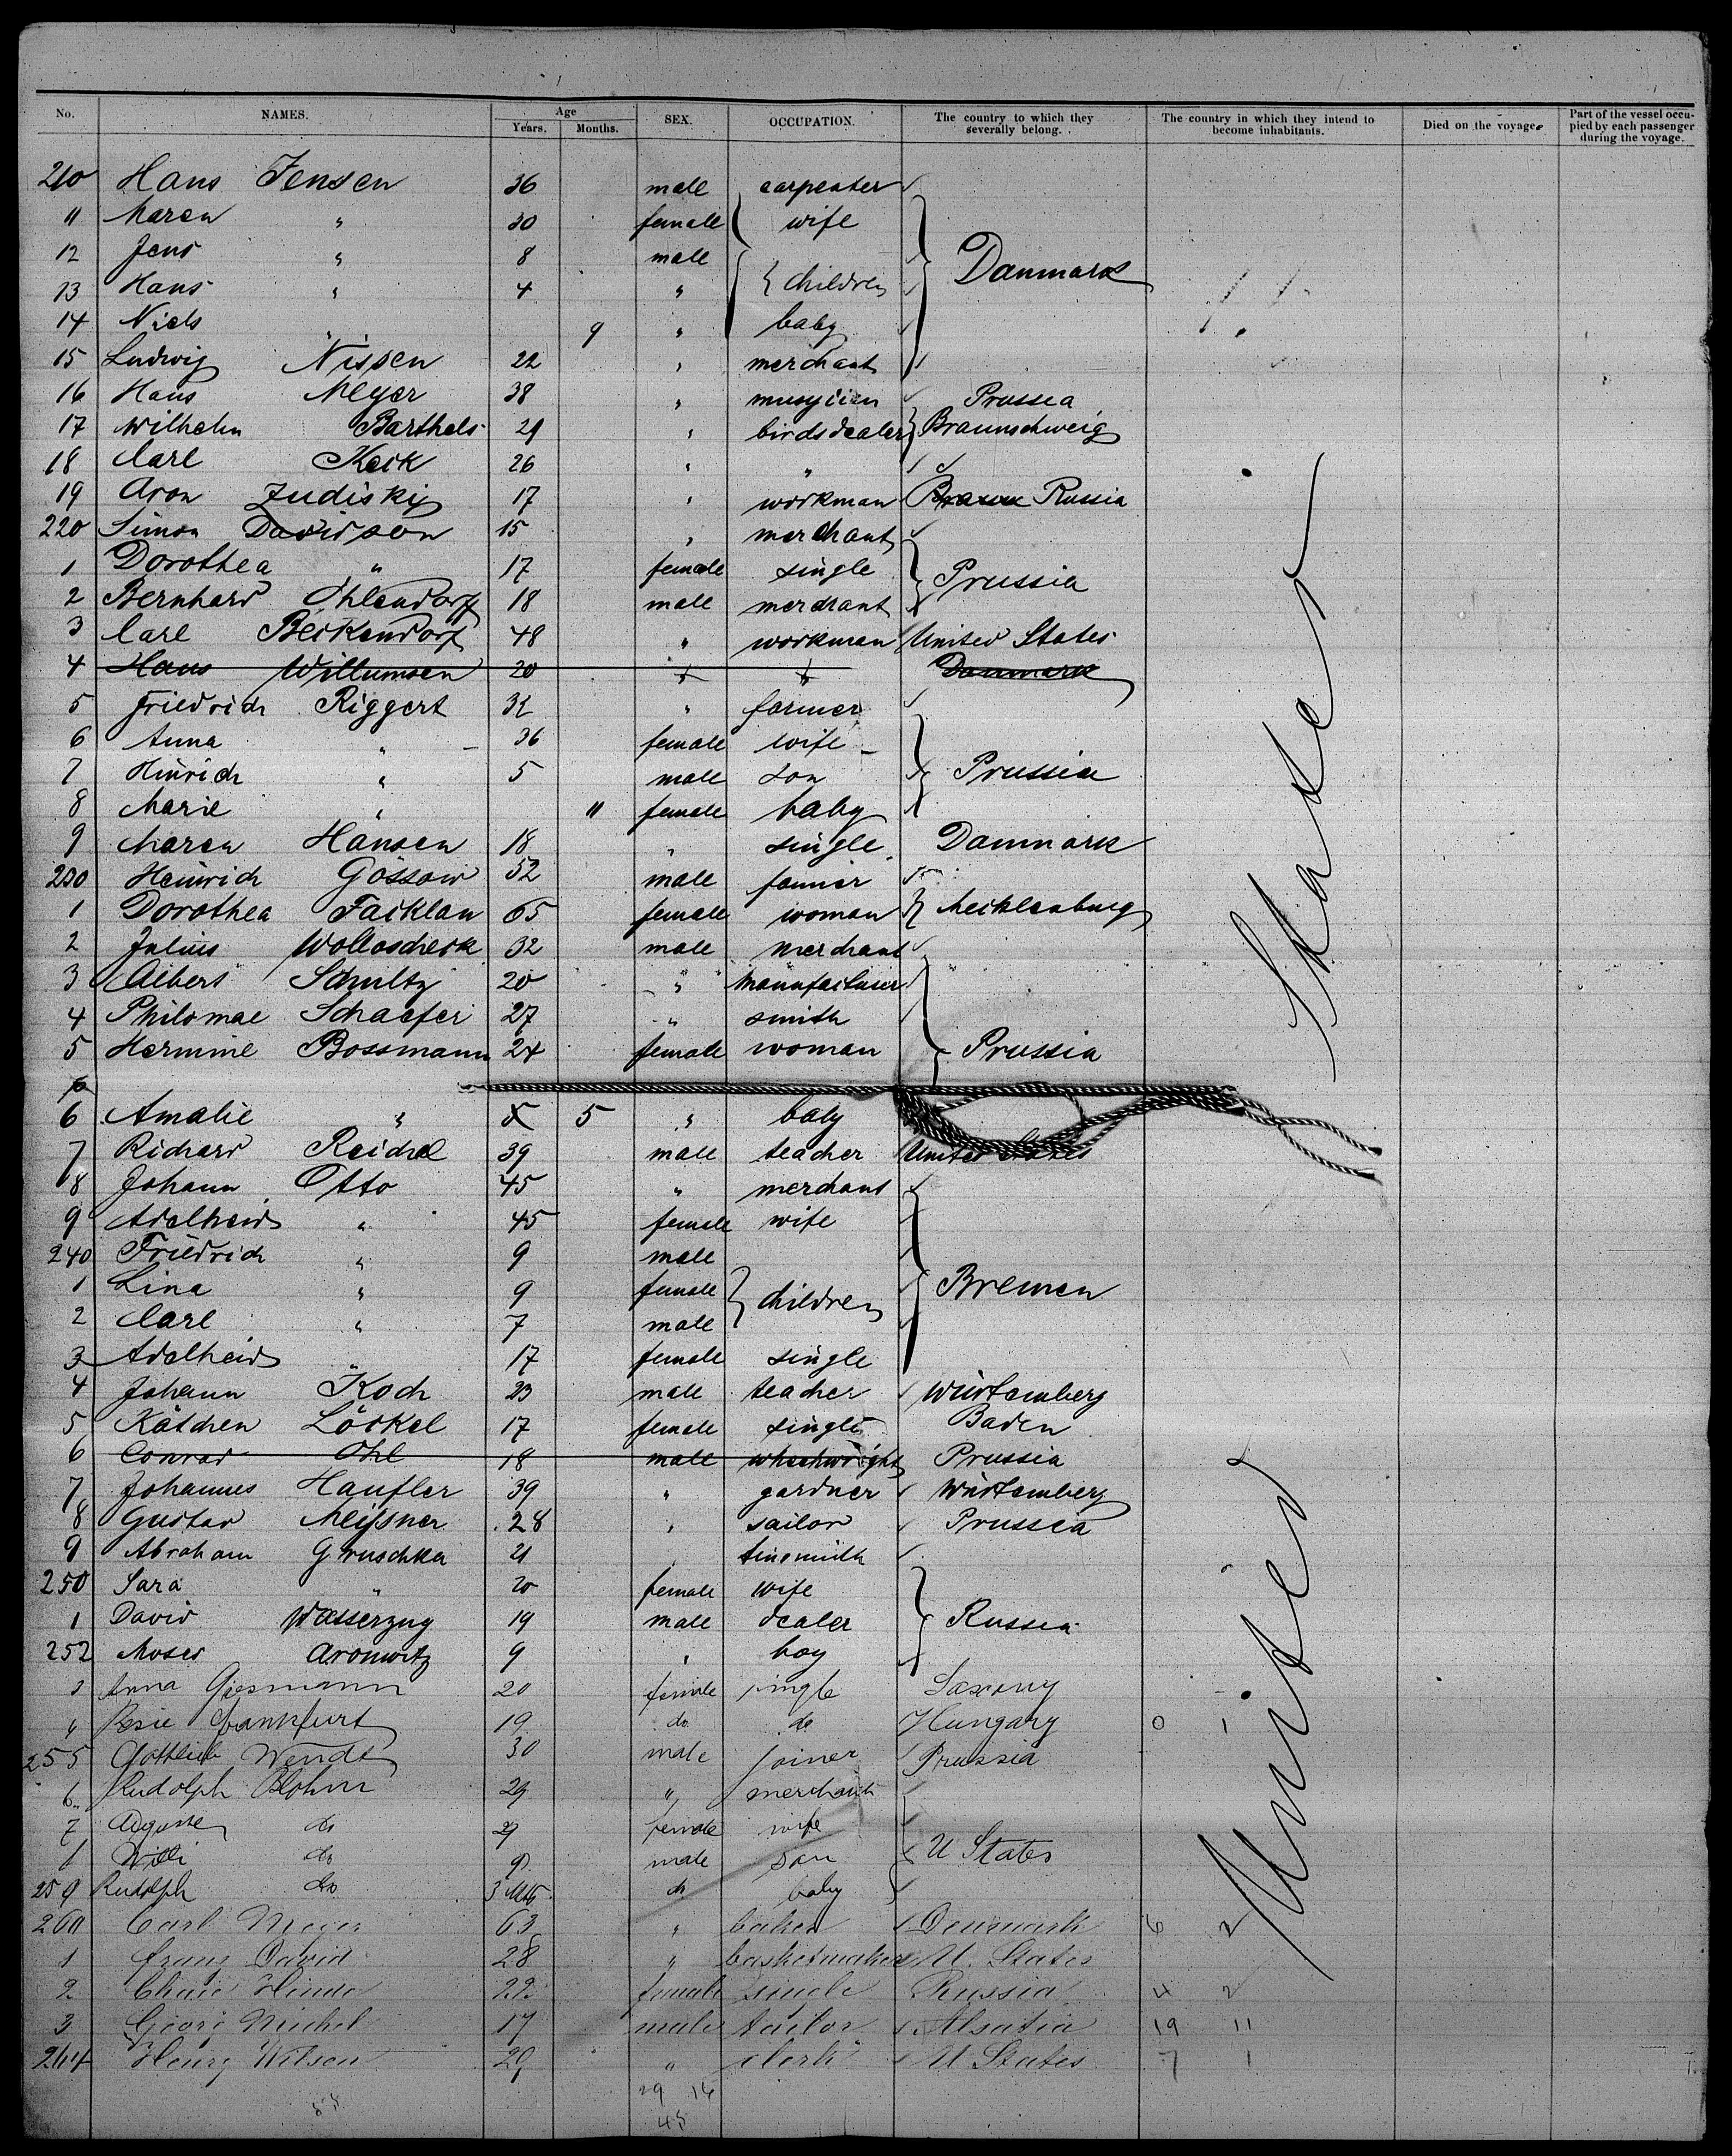 No. NAMES. Age Years. Months. SEX. OCCUPATION. The country to which they severally belong. The country in which they intend to become inhabitants. Died on the voyage. Part of the vessel occupied by each passenger during the voyage.
210 Hans Jensen 36 male carpenter
11 Maren " 30 female wife
12 Jens " 8 male
13 Hans " 4 " children Danmark
14 Niels " 9 " baby
15 Ludwig Nissen 22 " merchant
16 Hans Meyer 38 " Prussia
17 Wilhelm Barthels 29 " birdsdealer Braunschweig
18 Carl Keck 26 " "
19 Aron Zudisky 17 " workman Russia
220 Simon Davidson 15 " merchant
1 Dorothea " 17 female single Prussia
2 Bernhard Ohlendorff 18 male merchant
3 Carl Beckendorf 48 " workman United States
4 Hans Willumsen 20 " " Danmark
5 Friedrich Riggert 32 " farmer
6 Anna " 36 female wife
7 Hinrich " 5 male son Prussia
8 Marie " 11 female baby
9 Maren Hansen 18 " single Danmark
230 Heinrich Gössow 52 male
1 Dorothea Facklan 65 female woman Mecklenburg
2 Julius 32 male merchant
3 Albert Schultz 20 "
4 Schaefer 27 " smith
5 Hermine Bossmann 24 female woman Prussia
6 Amalie " 5 " baby
7 Richard Reichel 39 male teacher United States
8 Johann Otto 45 " merchant
9 Adelheid " 45 female wife
240 Friedrich " 9 male
1 Lina " 9 female children Bremen
2 Carl " 7 male
3 Adelheid " 17 female single
4 Johann Koch 23 male teacher Würtemberg
5 Kätchen Löckel 17 female single Baden
6 Conrad Ohl 18 male wheelwright Prussia
7 Johannes Haufler 39 " gardner Würtemberg
8 Gustav Meißner 28 " sailor Prussia
9 Abraham Gruschka 21 " tinsmith
250 Sara " 20 female wife
1 David Wasserzug 19 male dealer Russia
252 Moses Aronwitz 9 " boy
3 Anna Giesmann 20 female single Saxony
4 Frankfurt 19 do do Hungary 0 1
255 Gottlieb Wendt 30 male joiner Prussia
6 Rudolph Blohm 29 " merchant
7 Auguste do 29 female wife
8 Willi do 9 male son U States
259 Rudolph do 3 Mts do baby
260 Carl Meyer 63 " baker Denmark 6 2
1 Franz David 28 " basketmaker U. States
2 Chaie Hinde 22 female single Russia 4 2
3 Georg Michel 17 male tailor Alsatia 19 11
264 Henry Wilson 29 " clerk U States 7 1
29 16
45
United States